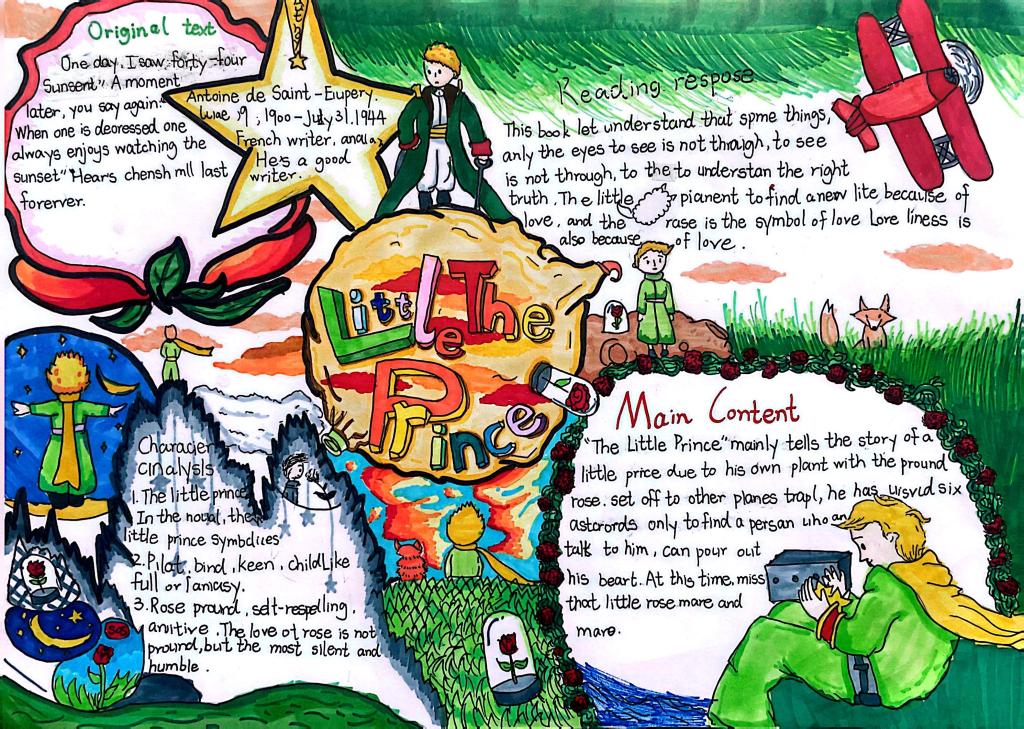 Original text
One day, I saw forty-four
Sunsent" A moment
later, you say again:
When one is deoressed one
always enjoys watching the
sunset" Hears chensh mll last
forerver.
Antoine de Saint-Eupery.
June 9, 1900-July 31.1944
French writer, anala
He's a good
writer.
Reading respose
This book let understand that spme things,
anly the eyes to see is not through, to see
is not through, to the to understan the right
truth. The little pianent to find a new lite because of
love, and the rase is the symbol of love Lore liness is
also because of love.
The
Little
Prince
Character
cinalysls
1. The little prince
In the noual, the
little prince symbdlices
2. Pilat, bind, keen, childLike
full or fantasy.
3. Rose praund, selt-respelling,
anvitive. The love of rose is not
pround, but the most silent and
humble.
SOS
Main Content
"The Little Prince" mainly tells the story of a
little price due to his own plant with the pround
rose. set off to other planes trapl, he has visvd six
astcrords only to find a persan who an
talk to him, can pour out
his beart. At this time, miss
that little rose mare and
mare.